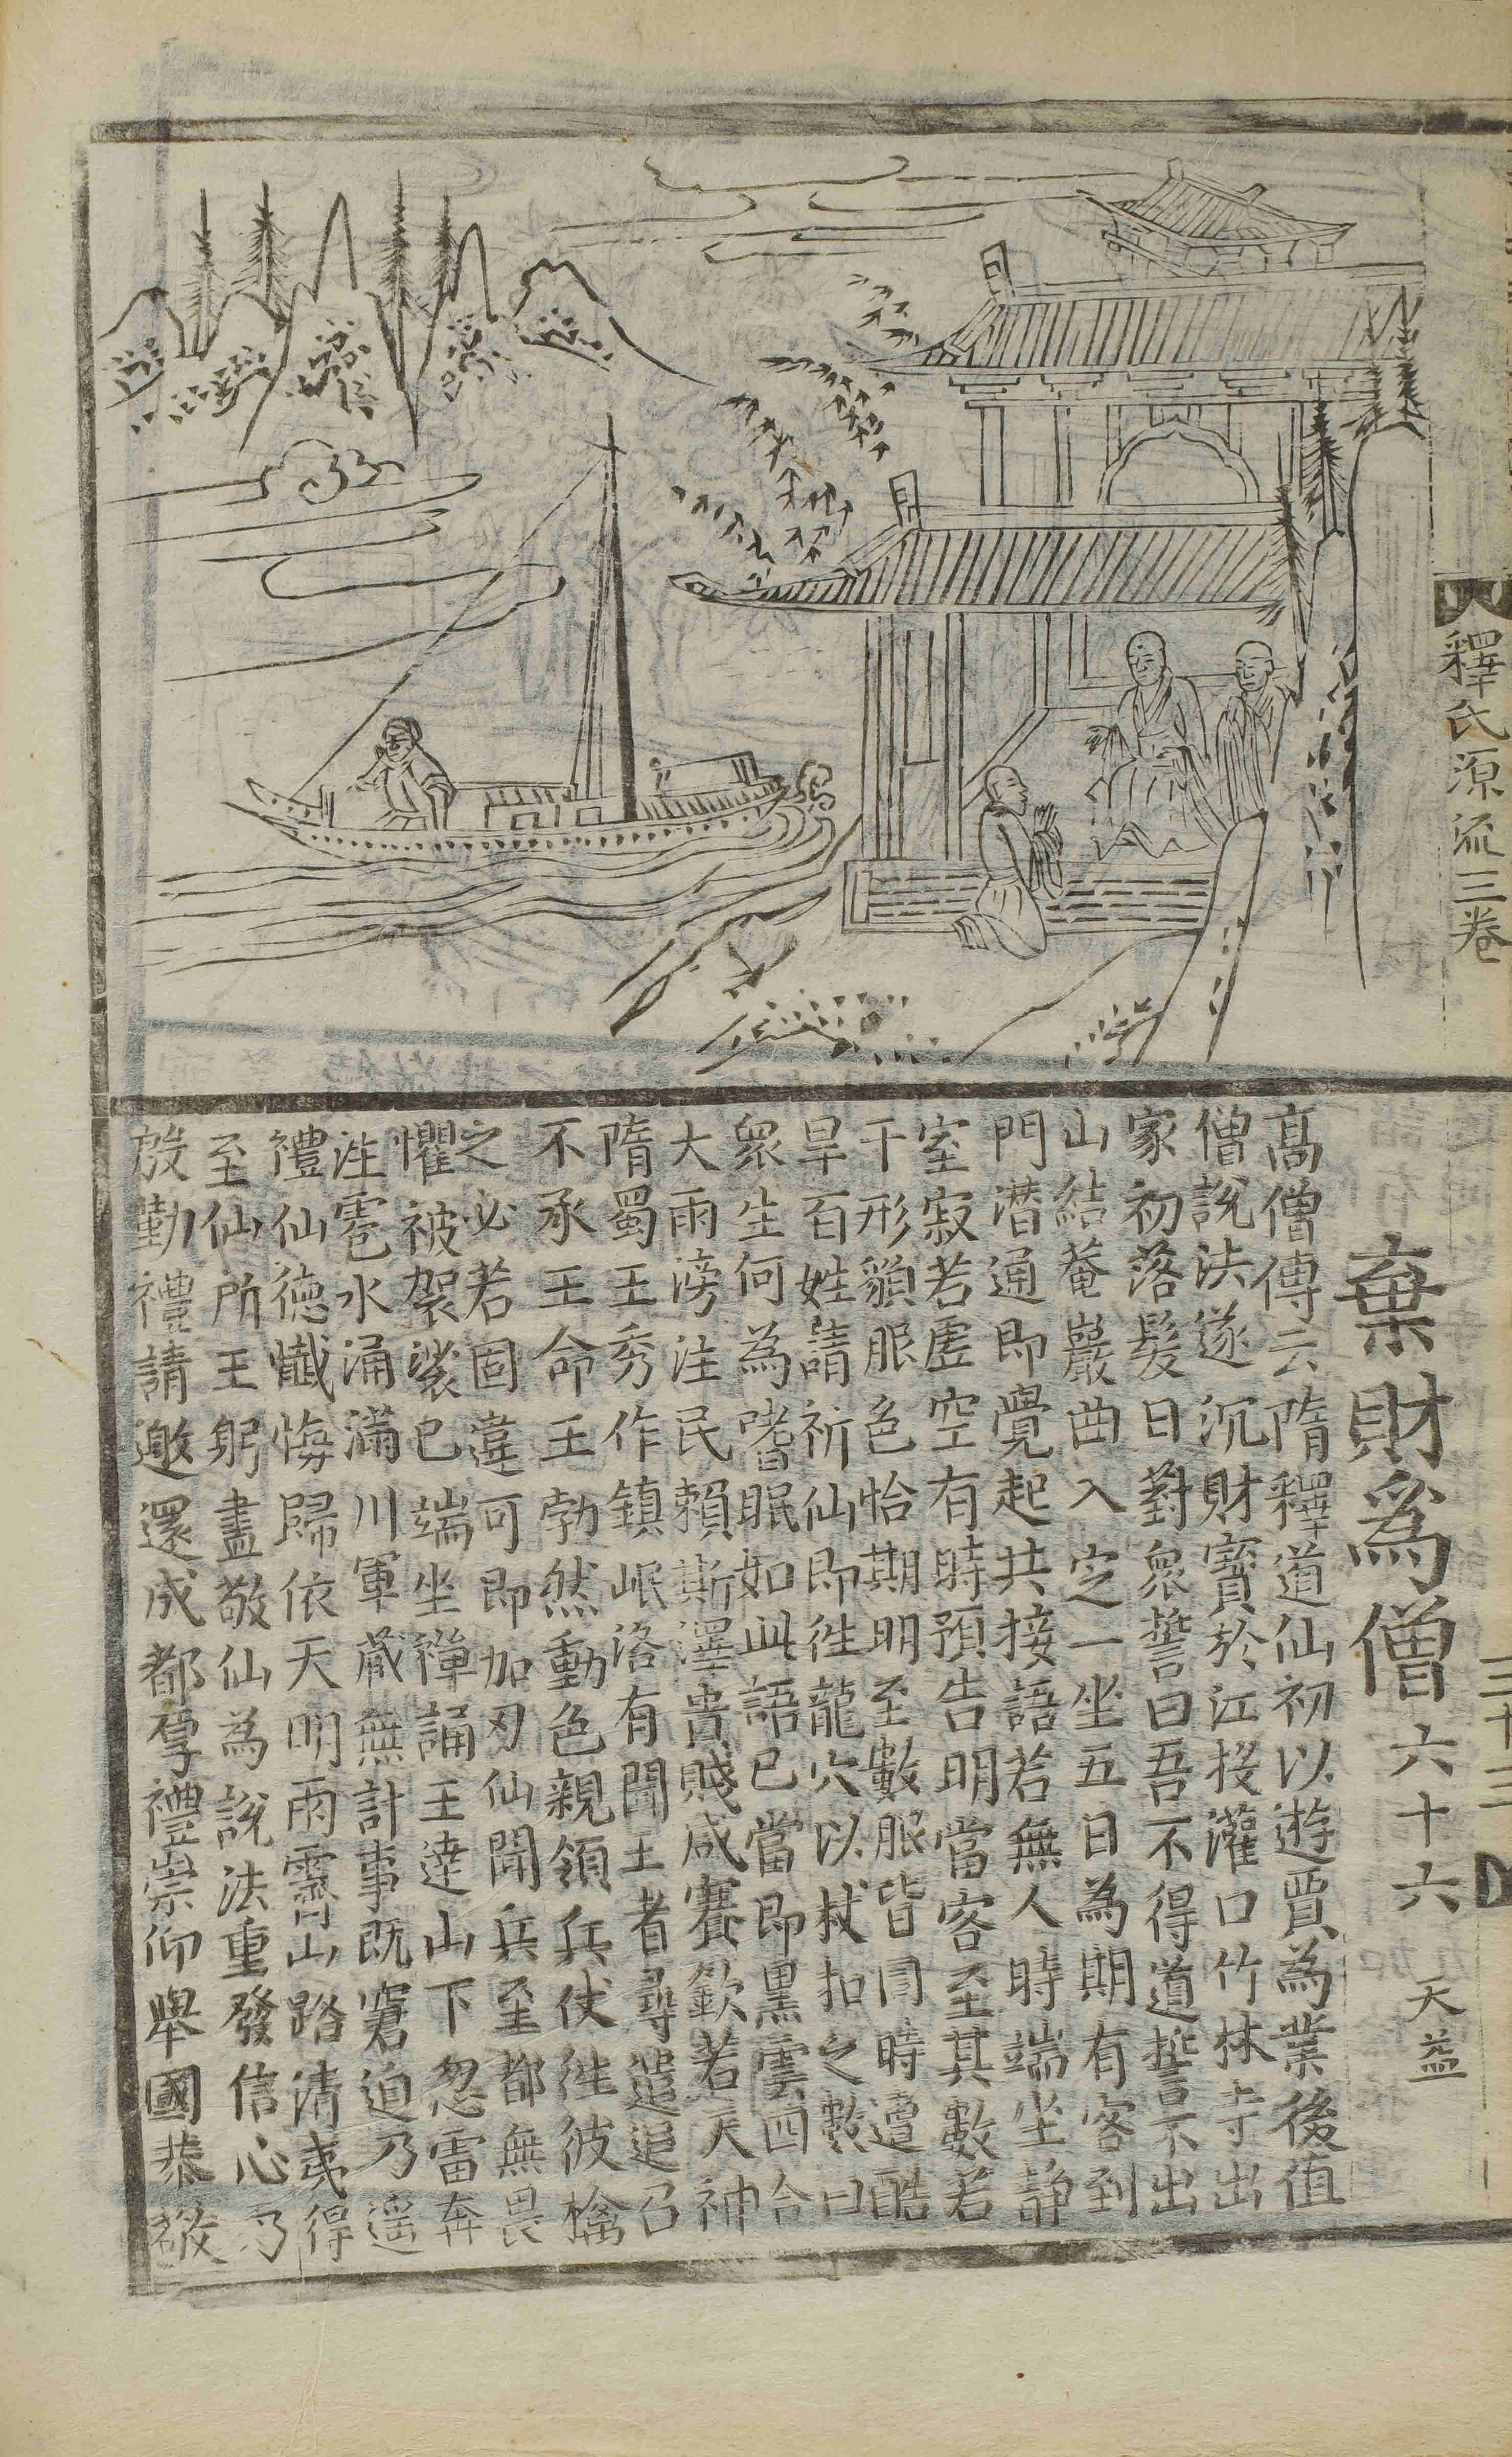 釋氏源流三卷
三十三
棄財爲僧六十六 天益
髙僧傳云隋釋道仙初以遊賈為業後值
僧說法遂沉財寳於江投灌口竹林寺出
家初落髮日對衆誓曰吾不得道誓不出
山結菴巖曲入定一坐五日為期有客到
門潜通即覺起共接語若無人時端坐静
室寂若虛空有時預告明當客至其數若
干形貌服色恰期明至數服皆同時遭酷
旱百姓請祈仙即徃龍穴以杖扣之數曰
衆生何為嗜眠如此語已當即黒雲四合
大雨滂注民賴斯澤貴賤咸賽欽若天神
隋蜀王秀作鎮岷洛有聞王者尋遣追召
不承王命王勃然動色親領兵仗徃彼擒
之必若固違可即加刃仙聞兵至都無畏
懼被袈裟已端坐禪誦王逹山下忽雷奔
注雹水涌滿川軍藏無計事既窘迫乃遥
禮仙德懺悔歸依天明雨霽山路清夷得
至仙所王躬盡敬仙為說法重發信心乃
慇勤禮請邀還成都厚禮崇仰舉國恭敬